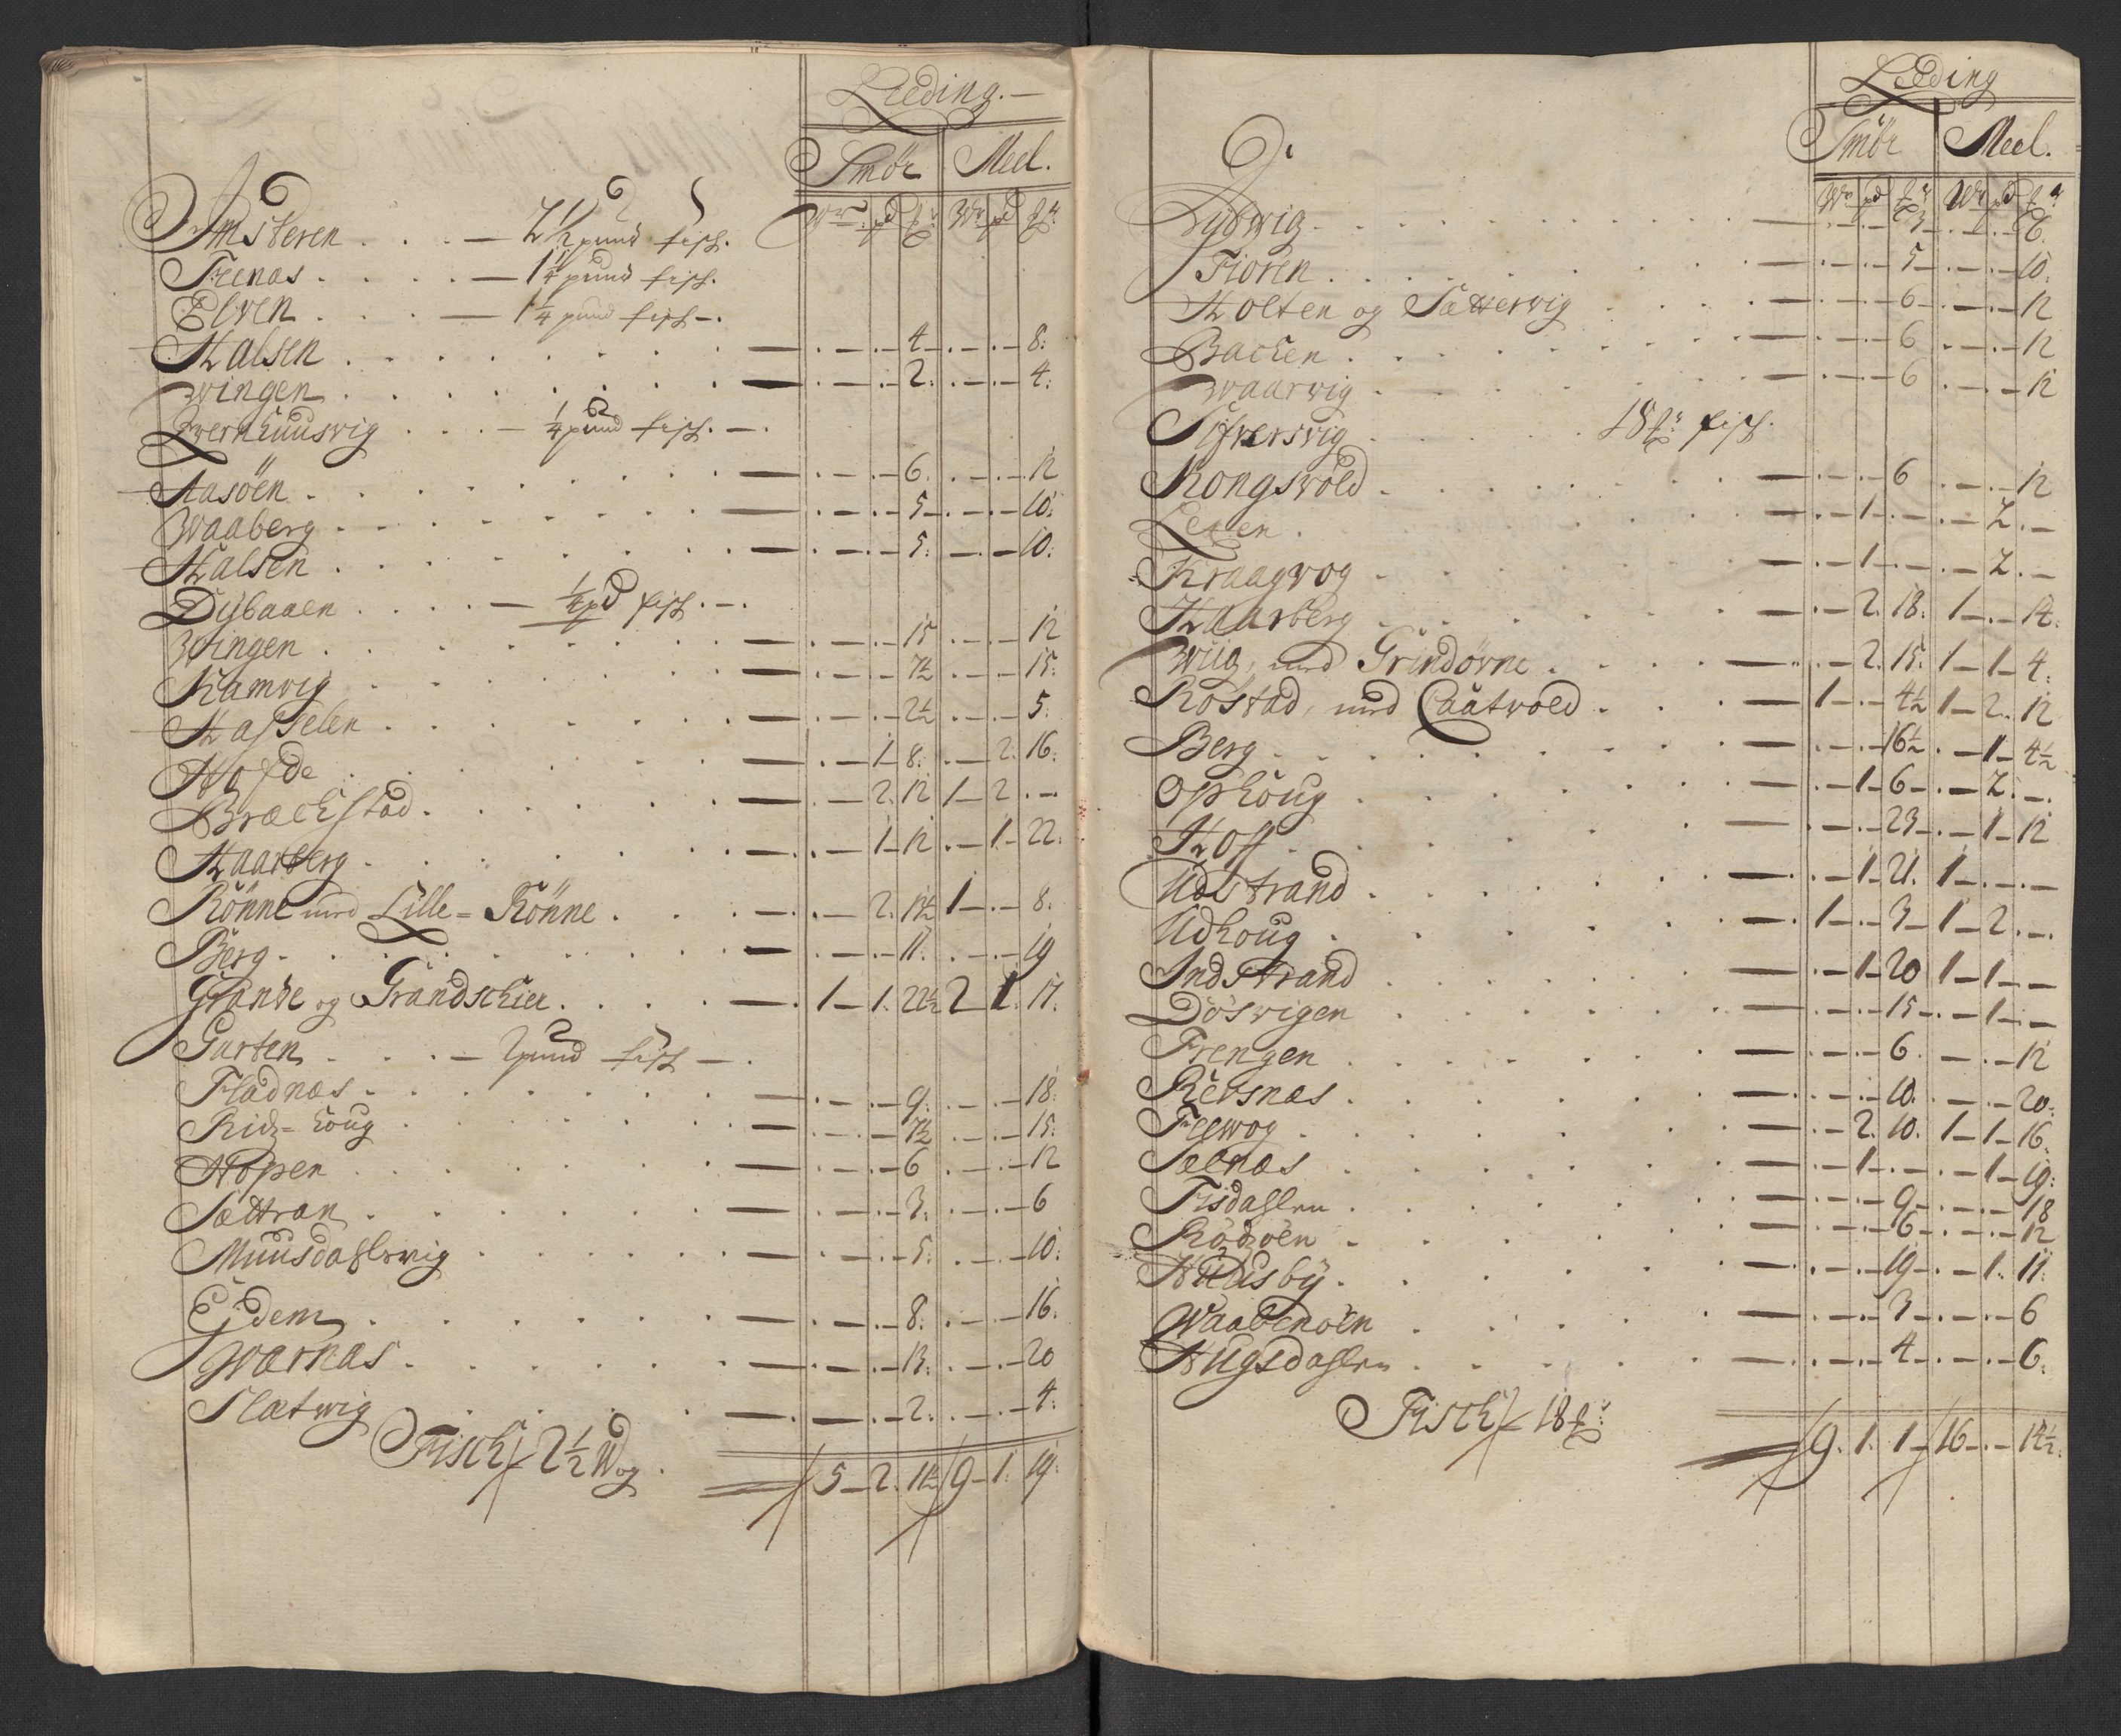 Leding.
Smør Meel.
Wr pd ℔ Wr pd ℔
Imsteren . . . — 2½ pund fisch.
Trenas . . . . — 1¼ pund fisch.
Elven . . . — 1¼ pund fisch —.
Halsen . . . — . — . — 4 — . — . — 8:
Wingen . . . — . — . — 2: . — . — 4:
Qvernhuusvig . . . — ¼ pund fisch. —.
Aasöen . . . — . — . — 6. . — . — 12
Waaberg . . . — . — . — 5 — . — . — 10:
Halsen . . . — . — . — 5: — . — 10:
Dÿbaaen . . . . — ¼ pd fisch. —.
Wingen . . . — . — . — 15 . — . — 12
Kamvig . . . — . — . — 7½ . — . — 15:
Hasselen . . . — . — . — 2½ . — . — 5:
Hofde . . . — . — 1 8: . — 2. 16:
Bræchstad . . . — . — 2. 12 1 — 2 . —
Haarberg . . . — . — 1 — 12 . — 1. 22:
Rönne med Lille = Rönne . . . — . — 2. 1½ 1 — . — 8:
Berg . . . — . — . — 11: . — . — 19
Grande og Grandschier . . . — 1 — 1. 22½ 2 1. 17:
Garten . . . — 2 pund fisch — .
Fladnæs . . . — . — . — 9: . — . — 18:
Ridz = houg . . . — . — . — 7½ . — . — 15:
Hopen . . . — . — . — 6 . — . — 12
Sættran . . . — . — . — 3: . — . — 6
Muusdahlsvig . . . — . — . — 5: . — . — 10:
Ejdem . . . — . — . — 8: . — . — 16:
Wærnæs . . . — . — . — 13: . — . — 20
Slætwig . . . — . — . — 2: . — . — 4:
Fisch 2½ Wog.
5 — 2. 1½ 9 — 1. 19:
Leding
Smör Meel.
Wr pd ℔ Wr pd ℔
Dybvig . . . — . — . — 3 — . — . — 6.
Fioren . . . — . — . — 5 — . — . — 10:
Holten og Sættervig . . . — . — . — 6 — . — . — 12
Bachen . . . — . — . — 6 . — . — 12
Waarvig . . . — . — . — 6 . — . — 12
Sifversvig . . . 18 ℔ fisch.
Kongsvold . . . — . — . — 6 . — . — 12
Lexen . . . — . — 1 — . — . — 2. —
Kraagvog . . . — . — 1 — . — . — 2. —
Haarberg . . . — . — 2. 18: 1 — . — 14:
Wiig, med Grindörne . . . — . — 2. 15: 1 — 1 — 4:
Rostad, med Caatvold . . . — 1 — . — 4½ 1 — 2. 12
Berg . . . — . — . — 16½ . — 1 — 4½
Ophoug . . . — . — 1 — 6 — . — 2. —.
Hoff . . . — . — . — 23 — . — 1 — 12
Udstrand . . . — . — 1 — 21. 1 — . — . —
Udhoug . . . — 1 — . — 3 — 1 — 2 . —.
Indstrand . . . — . — 1 — 20 1 — 1 — . —
Dösvigen . . . — . — . — 15 — . — 1 — . —
Frengen . . . — . — . — 6. — . — 12
Refsnæs . . . — . — . — 10. . — . — 20:
Feevog . . . — . — 2. 10. 1 — 1 — 16.
Sælnæs . . . — . — 1 — . — . — 1 — 19:
Fisdahlen . . . — . — . — 9 — . — . — 18
Rödzöen . . . — . — . — 6 — . — . — 12
Huusbÿ . . . — . — . — 19 — . — 1. 11:
Waabenöen . . . — . — . — 3 — . — . — 6
Hugsdahlen . . . — . — . — 4 — . — . — 6:
Fisch 18 ℔:
9. 1. 1 — 16 — . — 14½.